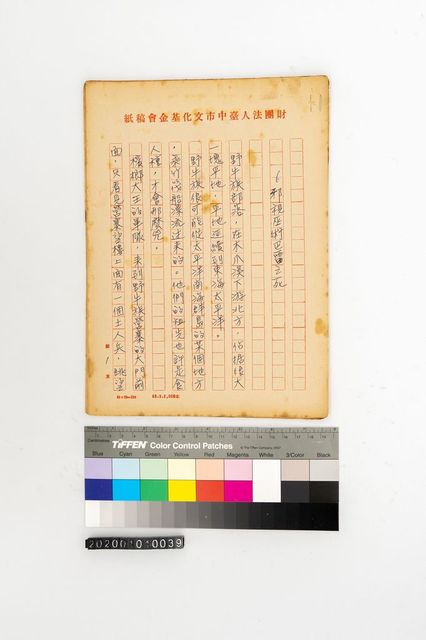 財團法人臺中市文化基金會稿紙
6 邪視巫術巴雷之死
野牛族部落，在木瓜溪下游北方，佔據幾大
一塊平地，平地延續到東海太平洋。
野牛族很可能從太平洋南海群島的某個地方
，乘竹筏船漂流過來的。他們的祖先也許是食
人種，才會那麼兇。
檳榔大王的軍隊，來到野牛族營寨的大門前
面，只看見營寨望樓上面有一個土人兵，眺望
第 1 頁
Centimetres
TIFFEN Color Control Patches
Blue Cyan Green Yellow Red Magenta White 3/Color Black
202001010039